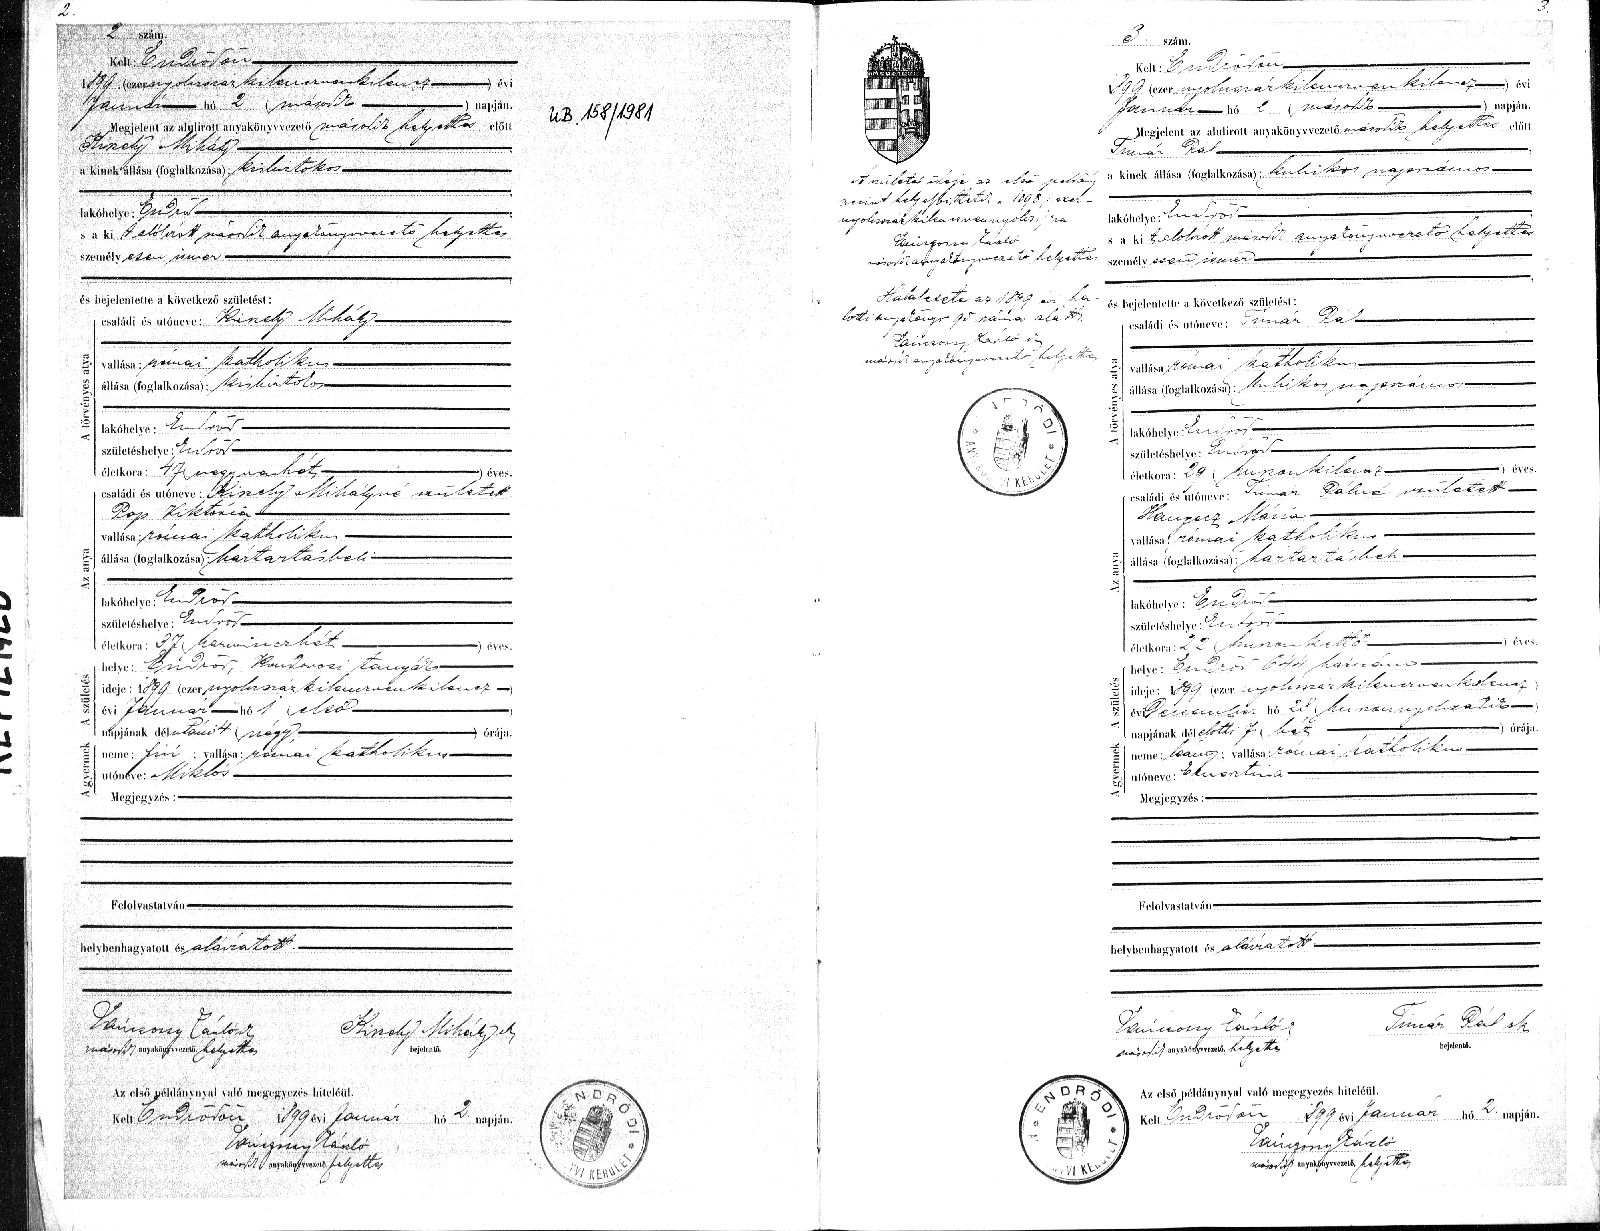 2.
2 szám.
Kelt: Endrődön
1899 (ezer nyolcszázkilencvenkilencz) évi
Január hó 2 (második) napján.
Megjelent az alulirott anyakönyvvezető második helyettes előtt
Mihály
a kinek állása (foglalkozása): kisbirtokos
lakóhelye: Endrőd
s a ki t alólirott második anyakönyvvezető helyettes
személyesen ismer
és bejelentette a következő születést:
A törvényes atya
családi és utóneve: Mihály
vallása: római katholikus
állása (foglalkozása): kisbirtokos
lakóhelye: Endrőd
születéshelye: Endrőd
életkora: 47 (negyvenhét) éves.
Az anya
családi és utóneve: Mihályné született
Pap Viktória
vallása: római katholikus
állása (foglalkozása): háztartásbeli
lakóhelye: Endrőd
születéshelye: Endrőd
életkora: 37 (harminczhét) éves.
A születés
helye: Endrőd, Kondorosi tanyák
ideje: 1899 (ezer nyolcszázkilencvenkilencz)
évi Január hó 1 (első)
napjának délutáni 4 (négy) órája.
A gyermek
neme: fiú; vallása: római katholikus
utóneve: Miklós
Megjegyzés:
Felolvastatván
helybenhagyatott és aláiratott.
László
Mihály
második anyakönyvvezető helyettes
bejelentő.
Az első példánynyal való megegyezés hiteléül.
Kelt Endrődön 1899 évi január hó 2. napján.
László
második anyakönyvvezető, helyettes
ENDRŐDI
KERÜLET
ÚB. 158/1981
3.
A születés ideje az első példány
szerint helyesbíttetett 1898, ezer-
nyolcszázkilencvennyolcz, ra
László
második anyakönyvvezető helyettes
Halálesete az 1899 évi ha-
lotti anyakönyv 90 száma alatt.
László
második anyakönyvvezető helyettes
ENDRŐDI
ANYAKÖNYVI KERÜLET
3 szám.
Kelt: Endrődön
899 (ezer nyolcszázkilencvenkilencz) évi
Január hó 2 (második) napján.
Megjelent az alulirott anyakönyvvezető második helyettes előtt
Timár Pál
a kinek állása (foglalkozása): kubikos napszámos
lakóhelye: Endrőd
s a ki t alólirott második anyakönyvvezető helyettes
személyesen ismer
és bejelentette a következő születést:
A törvényes atya
családi és utóneve: Timár Pál
vallása: római katholikus
állása (foglalkozása): kubikos napszámos
lakóhelye: Endrőd
születéshelye: Endrőd
életkora: 29 (huszonkilencz) éves.
Az anya
családi és utóneve: Timár Pálné született
Hanyecz Mária
vallása: római katholikus
állása (foglalkozása): háztartásbeli
lakóhelye: Endrőd
születéshelye: Endrőd
életkora: 22 (huszonkettő) éves.
A születés
helye: Endrőd 644 házszám
ideje: 1899 (ezer nyolcszázkilencvenkilencz)
évi December hó 28 (huszonnyolczadik)
napjának délelőtti 7 (hét) órája.
A gyermek
neme: leány; vallása: római katholikus
utóneve: Ernesztina
Megjegyzés:
Felolvastatván
helybenhagyatott és aláiratott
László
Timár Pál sk
második anyakönyvvezető, helyettes
bejelentő.
Az első példánynyal való megegyezés hiteléül.
Kelt Endrődön 899 évi Január hó 2. napján.
László
második anyakönyvvezető, helyettes
ENDRŐDI